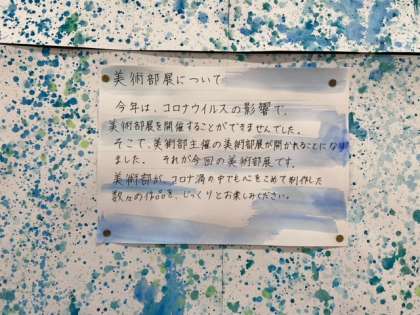 美術部展について
今年は、コロナウイルスの影響で、
美術部展を開催することができませんでした。
そこで、美術部主催の美術部展が開かれることになり
ました。 それが今回の美術部展です。
美術部が、コロナ渦の中でも心をこめて制作した
数々の作品を、じっくりとお楽しみください。